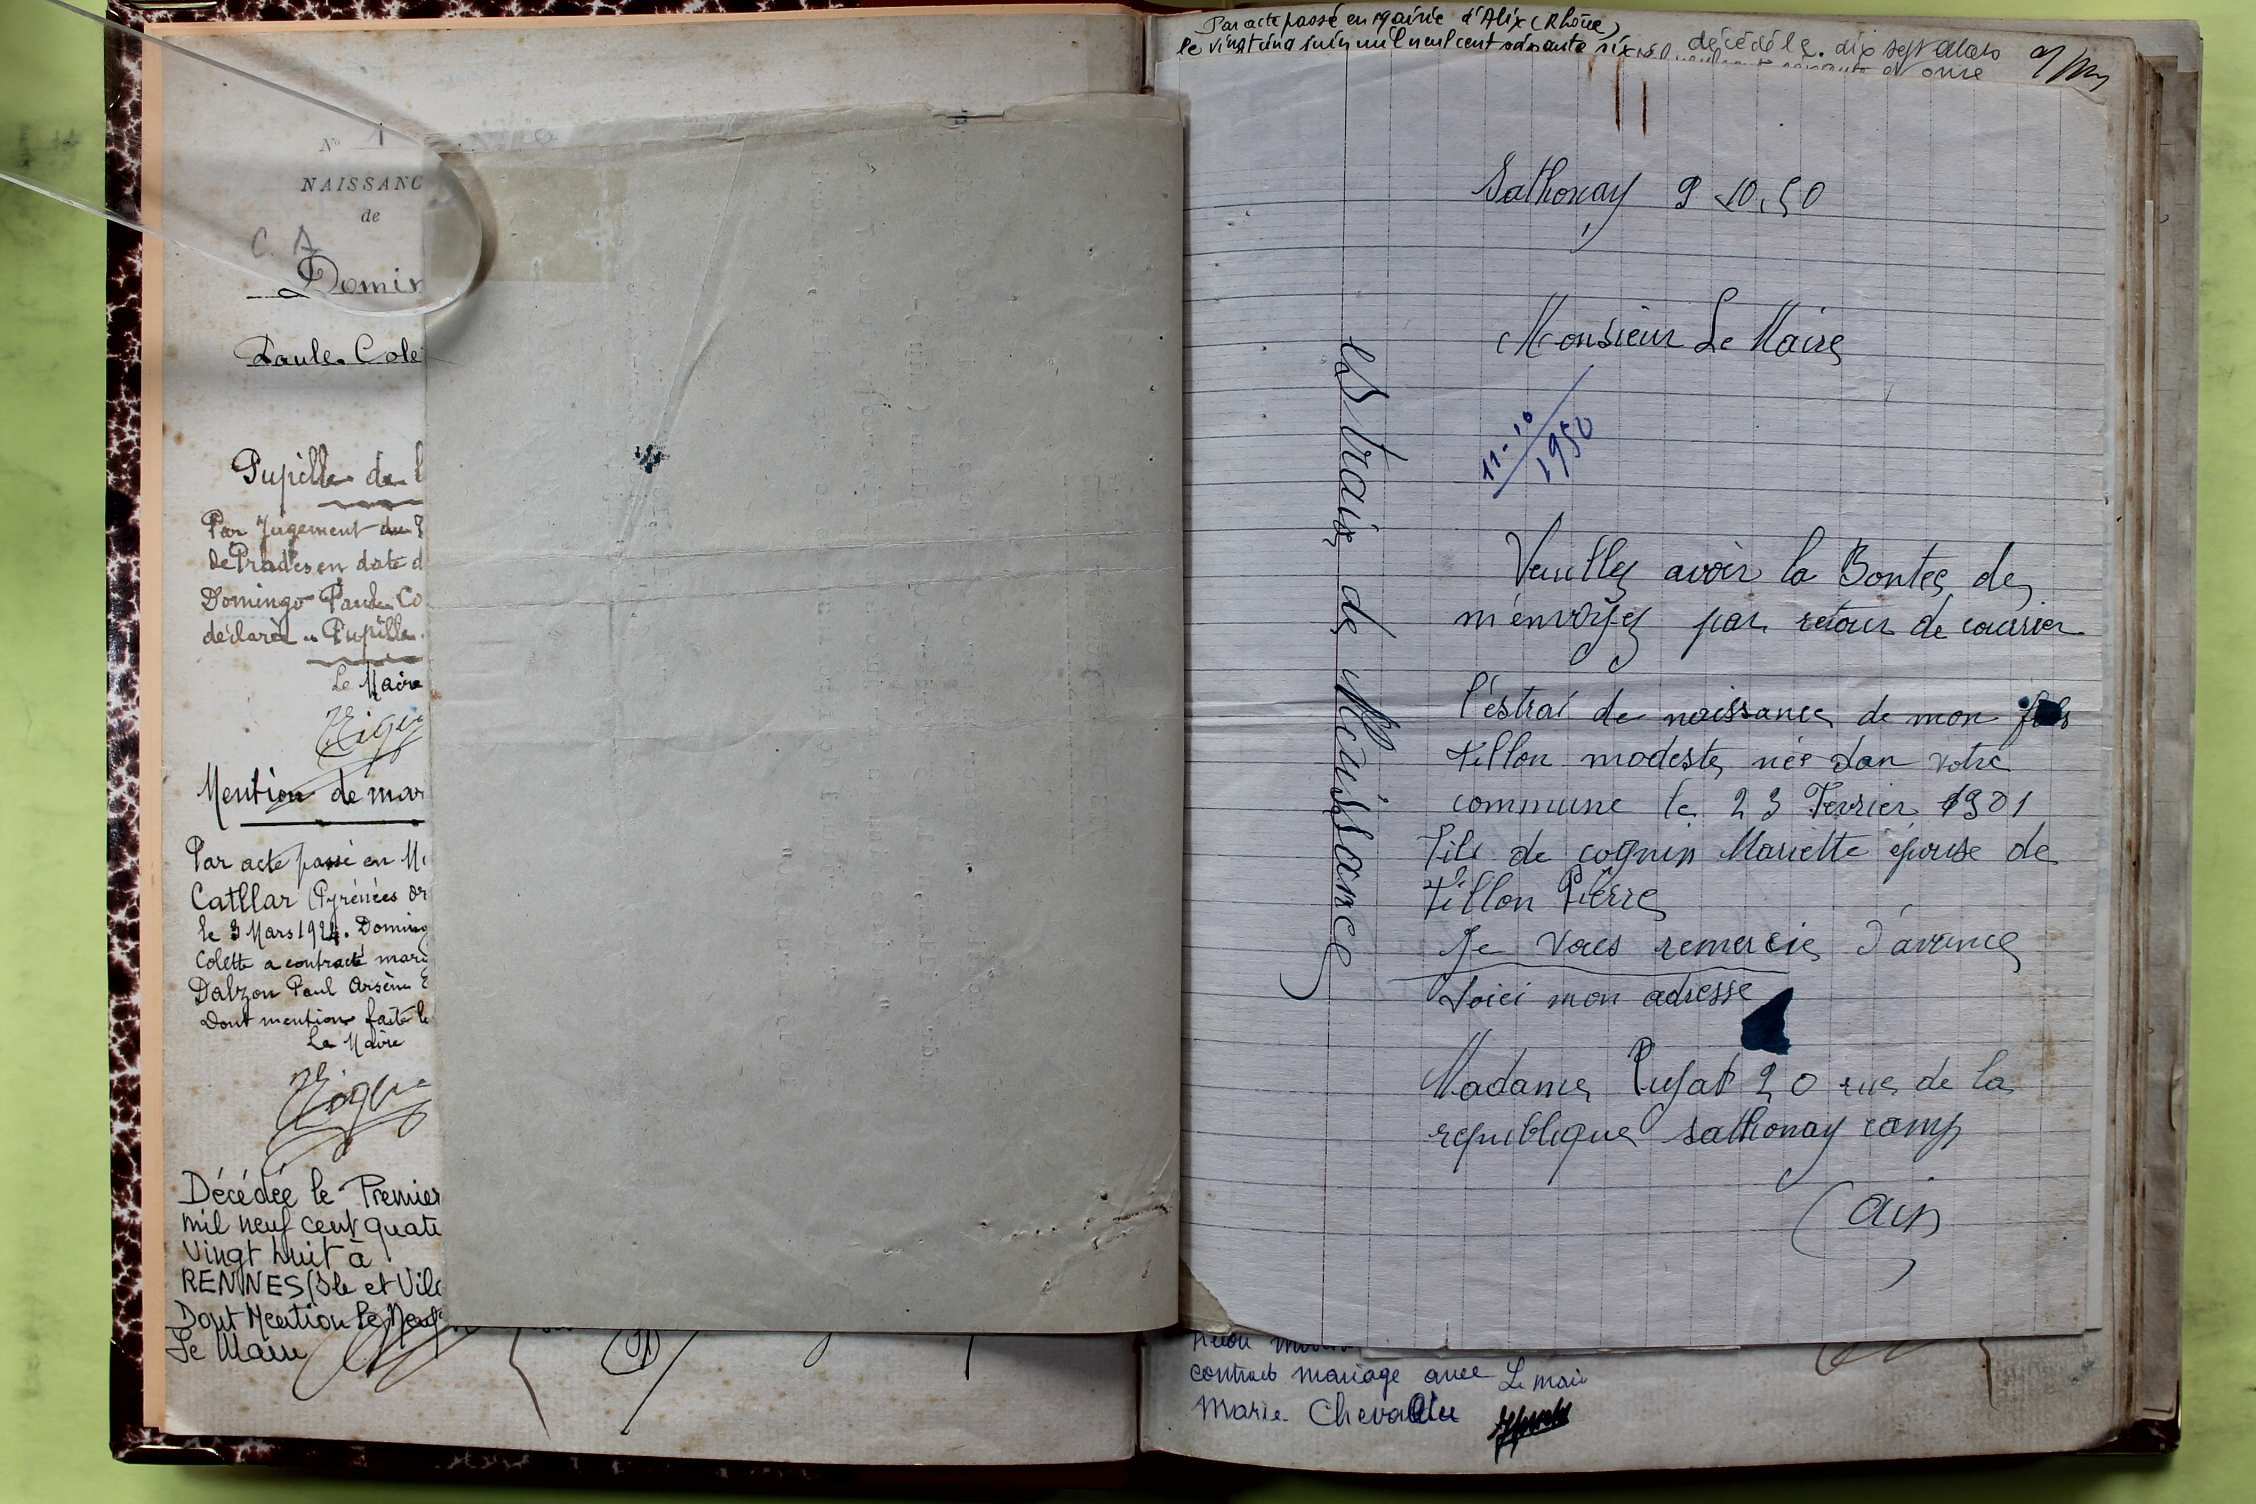 No 1
NAISSANC
de
C. A
Domin
Paule Cole
Pupille de l
Par Jugement du T
de Prades en date d
Domingo Paule Co
déclarée "Pupille
Le Maire
Mention de mar
Par acte passé en M
Catllar (Pyrénées or
le 3 Mars 1924. Doming
Colette a contracté mari
Dalzon Paul Arsène E
Dont mention faite le
Le Maire
Décédée le Premier
mil neuf cent quate
vingt huit à
RENNES (Ile et Vil
Dont Mention le Neuf
Le Maire
Par acte passé en Mairie d'Alix (Rhône)
le vingt cinq juin mil neuf cent soixante six
décédé le dix sept Mars
et onze
Sathonay 9 10.50
Monsieur Le Maire
11-10
1950
Veuilley avoir la Bontee de
m'envoyez par retour de courrier
l'éstrai de naissance de mon fils
tillon modeste née dan votre
commune le 23 Fevrier 1901
Fils de cognin Mariette épouse de
tillon Pierre
Je vous remercie d'avance
Voici mon adresse
Madame Pujat 20 rue de la
republique sathonay camp
(Ain
es trair de Naissance
contracté mariage avec
Marie Chevallier
Le maire